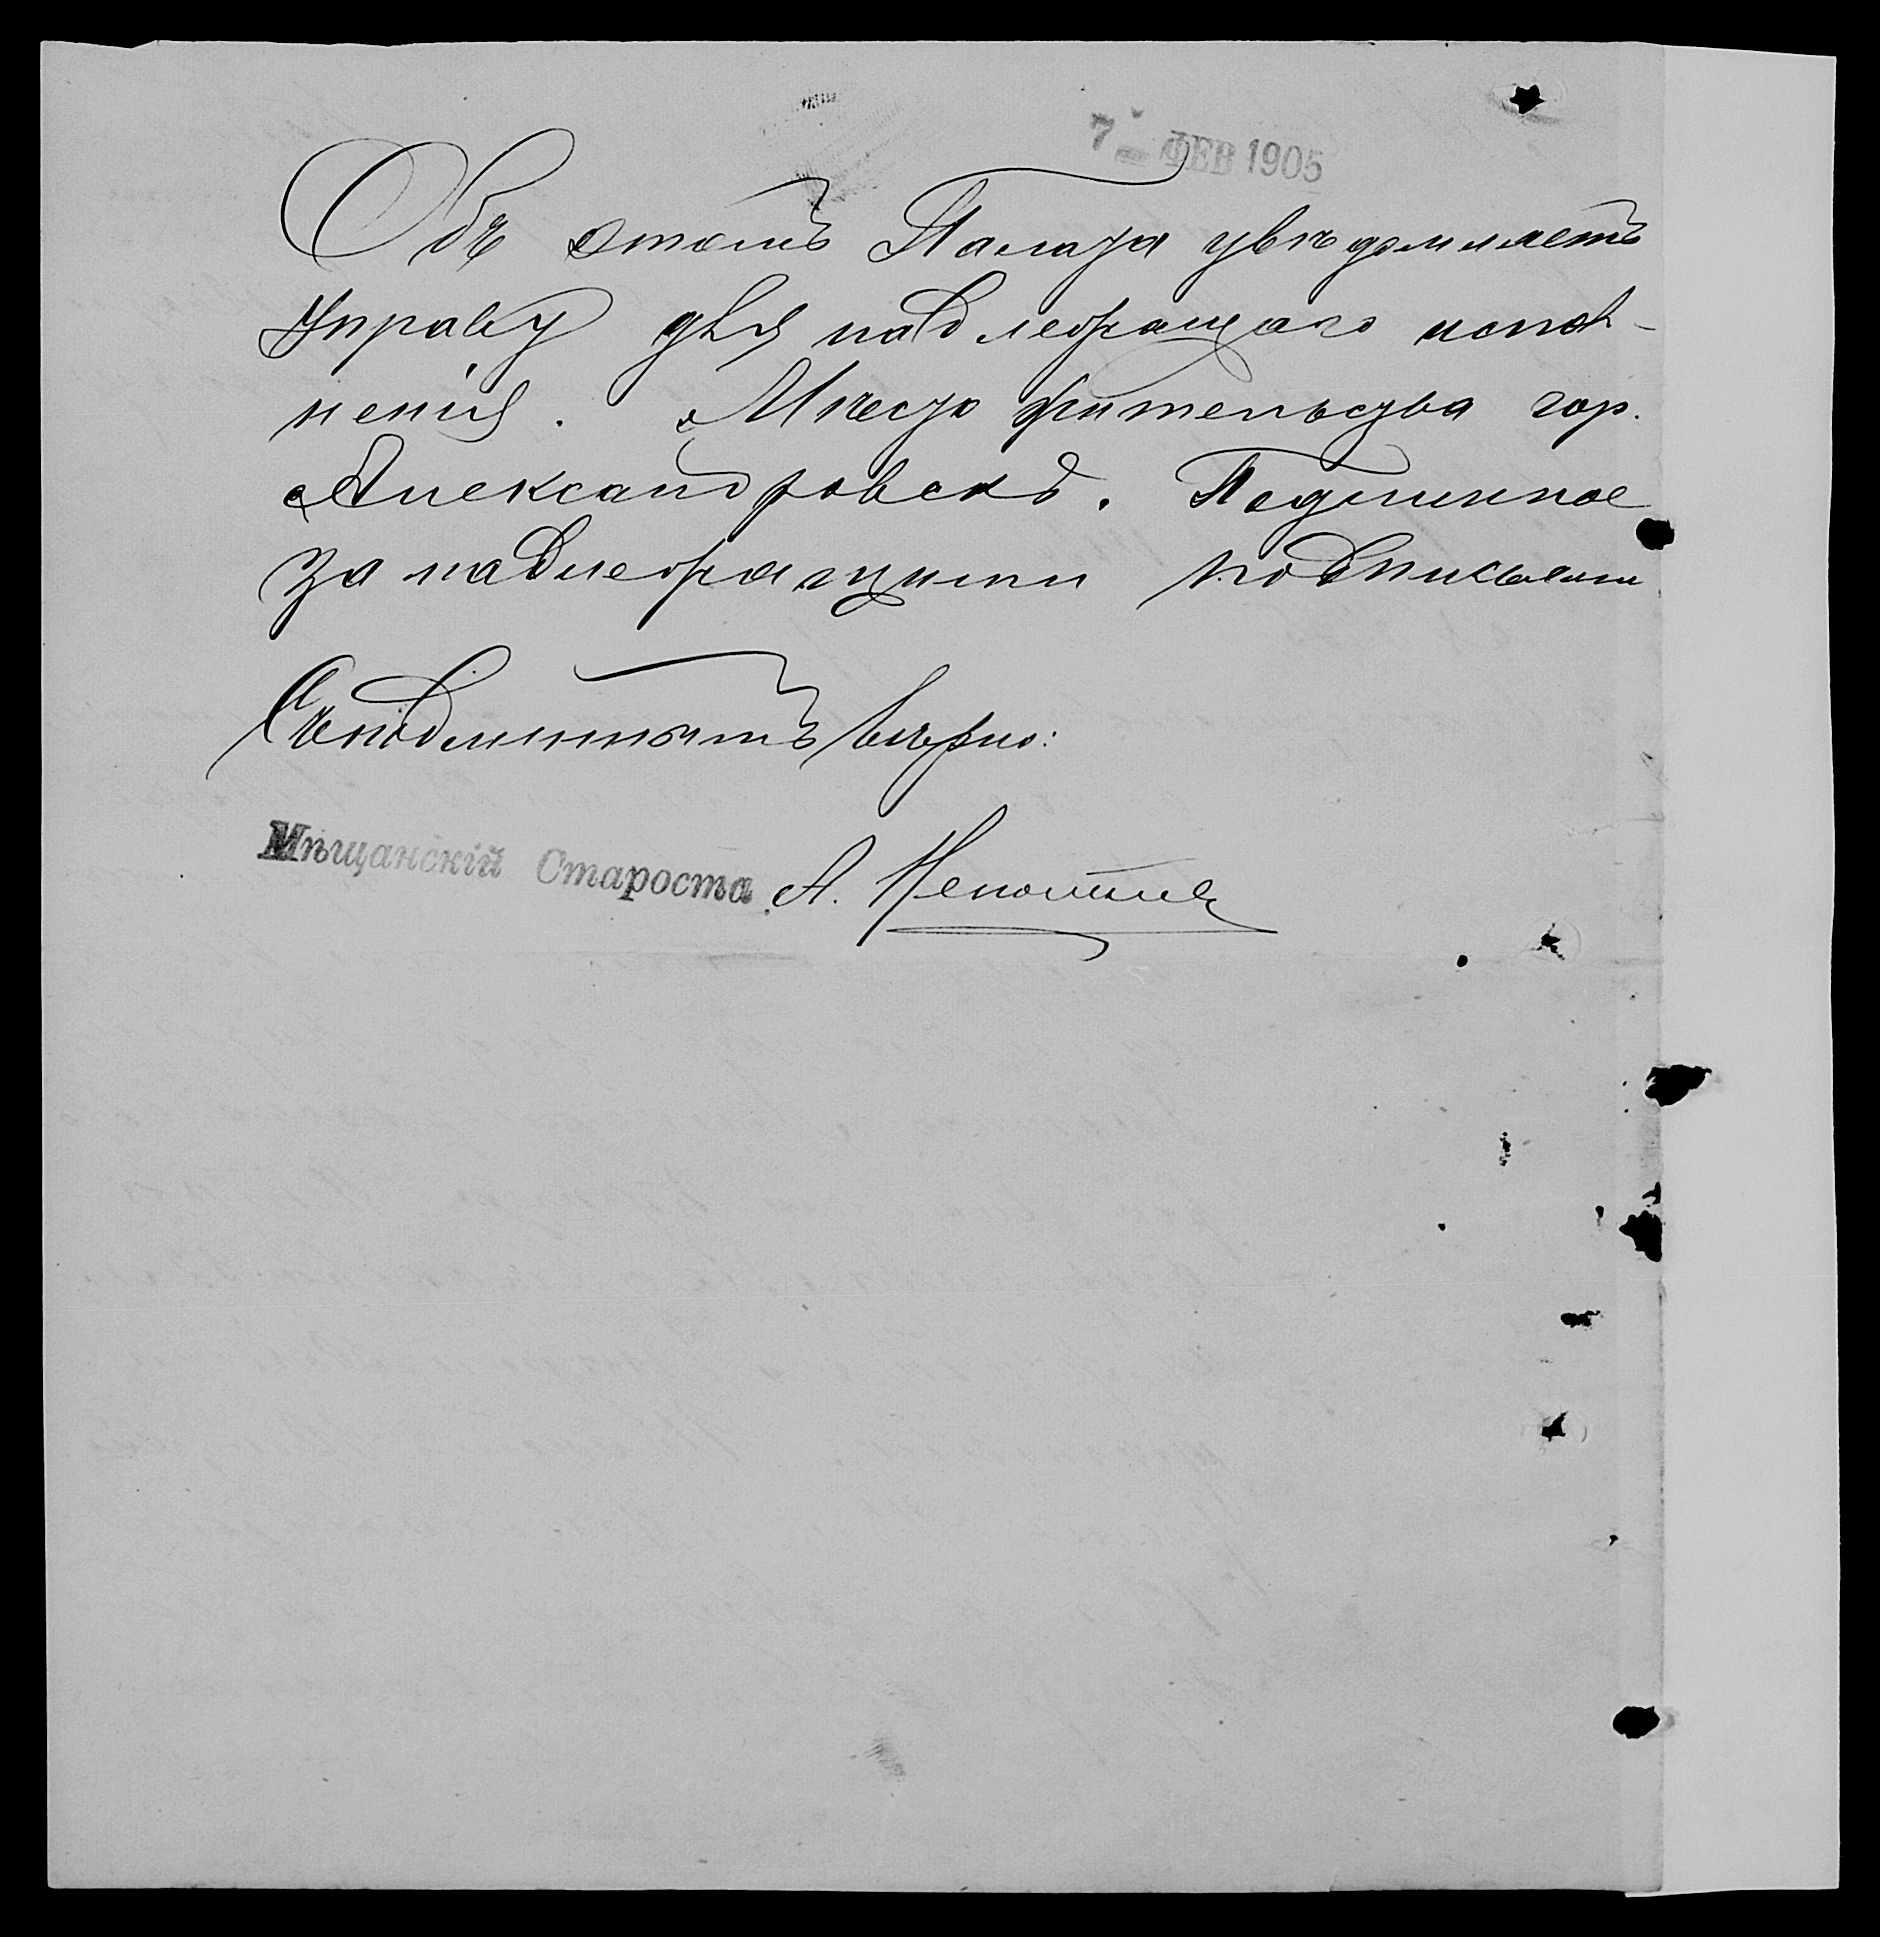 7 ФЕВ 1905
Объ этомъ Палата увѣдомляетъ
Управу для надлежащаго испол-
ненія. Мѣсто жительства гор.
Александровскъ. Подлинное
за надлежащими подписями
Съ подлиннымъ вѣрно:
Мѣщанскій Староста А.